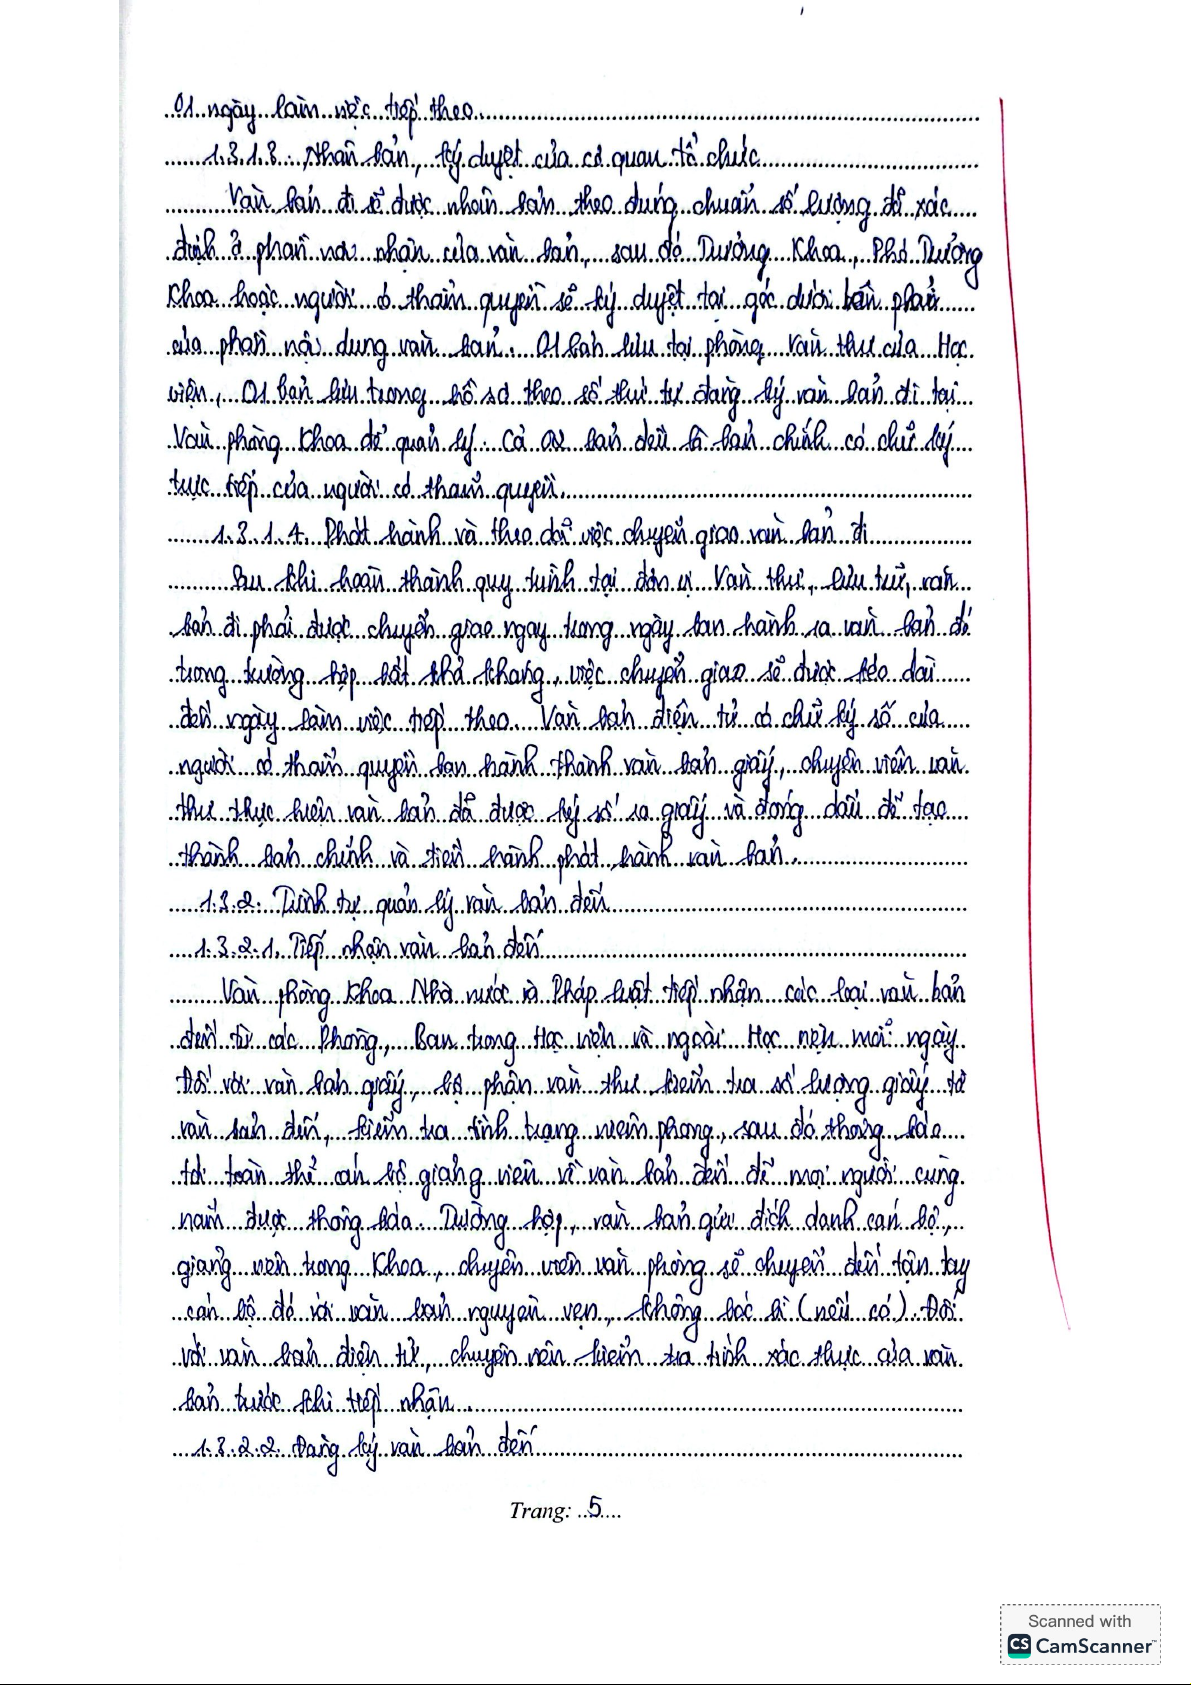 01 ngày làm việc tiếp theo.
1.3.1.3. Nhân bản, ký duyệt của cơ quan tổ chức
Văn bản đi sẽ được nhân bản theo đúng chuẩn số lượng để xác
định ở phần nơi nhận của văn bản, sau đó Trưởng Khoa, Phó Trưởng
Khoa hoặc người có thẩm quyền sẽ ký duyệt tại góc dưới bên phải
của phần nội dung văn bản. 01 bản lưu tại phòng Văn thư của Học
viện, 01 bản lưu trong hồ sơ theo số thứ tự đăng ký văn bản đi tại
Văn phòng Khoa để quản lý. Cả 02 bản đều là bản chính có chữ ký
trực tiếp của người có thẩm quyền.
1.3.1.4. Phát hành và theo dõi việc chuyển giao văn bản đi
Sau khi hoàn thành quy trình tại đơn vị Văn thư, lưu trữ, văn
bản đi phải được chuyển giao ngay trong ngày ban hành ra văn bản đó
trong trường hợp bất khả kháng, việc chuyển giao sẽ được kéo dài
đến ngày làm việc tiếp theo. Văn bản điện tử có chữ ký số của
người có thẩm quyền ban hành thành văn bản giấy, chuyên viên văn
thư thực hiện văn bản đã được ký số ra giấy và đóng dấu để tạo
thành bản chính và tiến hành phát hành văn bản.
1.3.2. Trình tự quản lý văn bản đến
1.3.2.1. Tiếp nhận văn bản đến
Văn phòng Khoa Nhà nước và Pháp luật tiếp nhận các loại văn bản
đến từ các Phòng, Ban trong Học viện và ngoài Học viện mỗi ngày.
Đối với văn bản giấy, bộ phận văn thư kiểm tra số lượng giấy tờ
văn bản đến, kiểm tra tình trạng niêm phong, sau đó thông báo
tới toàn thể cán bộ giảng viên về văn bản đến để mọi người cùng
nắm được thông báo. Trường hợp, văn bản gửi đích danh cán bộ,
giảng viên trong Khoa, chuyên viên văn phòng sẽ chuyển đến tận tay
cán bộ đó với văn bản nguyên vẹn, không bóc bì (nếu có). Đối
với văn bản điện tử, chuyên viên kiểm tra tính xác thực của văn
bản trước khi tiếp nhận.
1.3.2.2. Đăng ký văn bản đến
Trang: 5
Scanned with
CS CamScanner